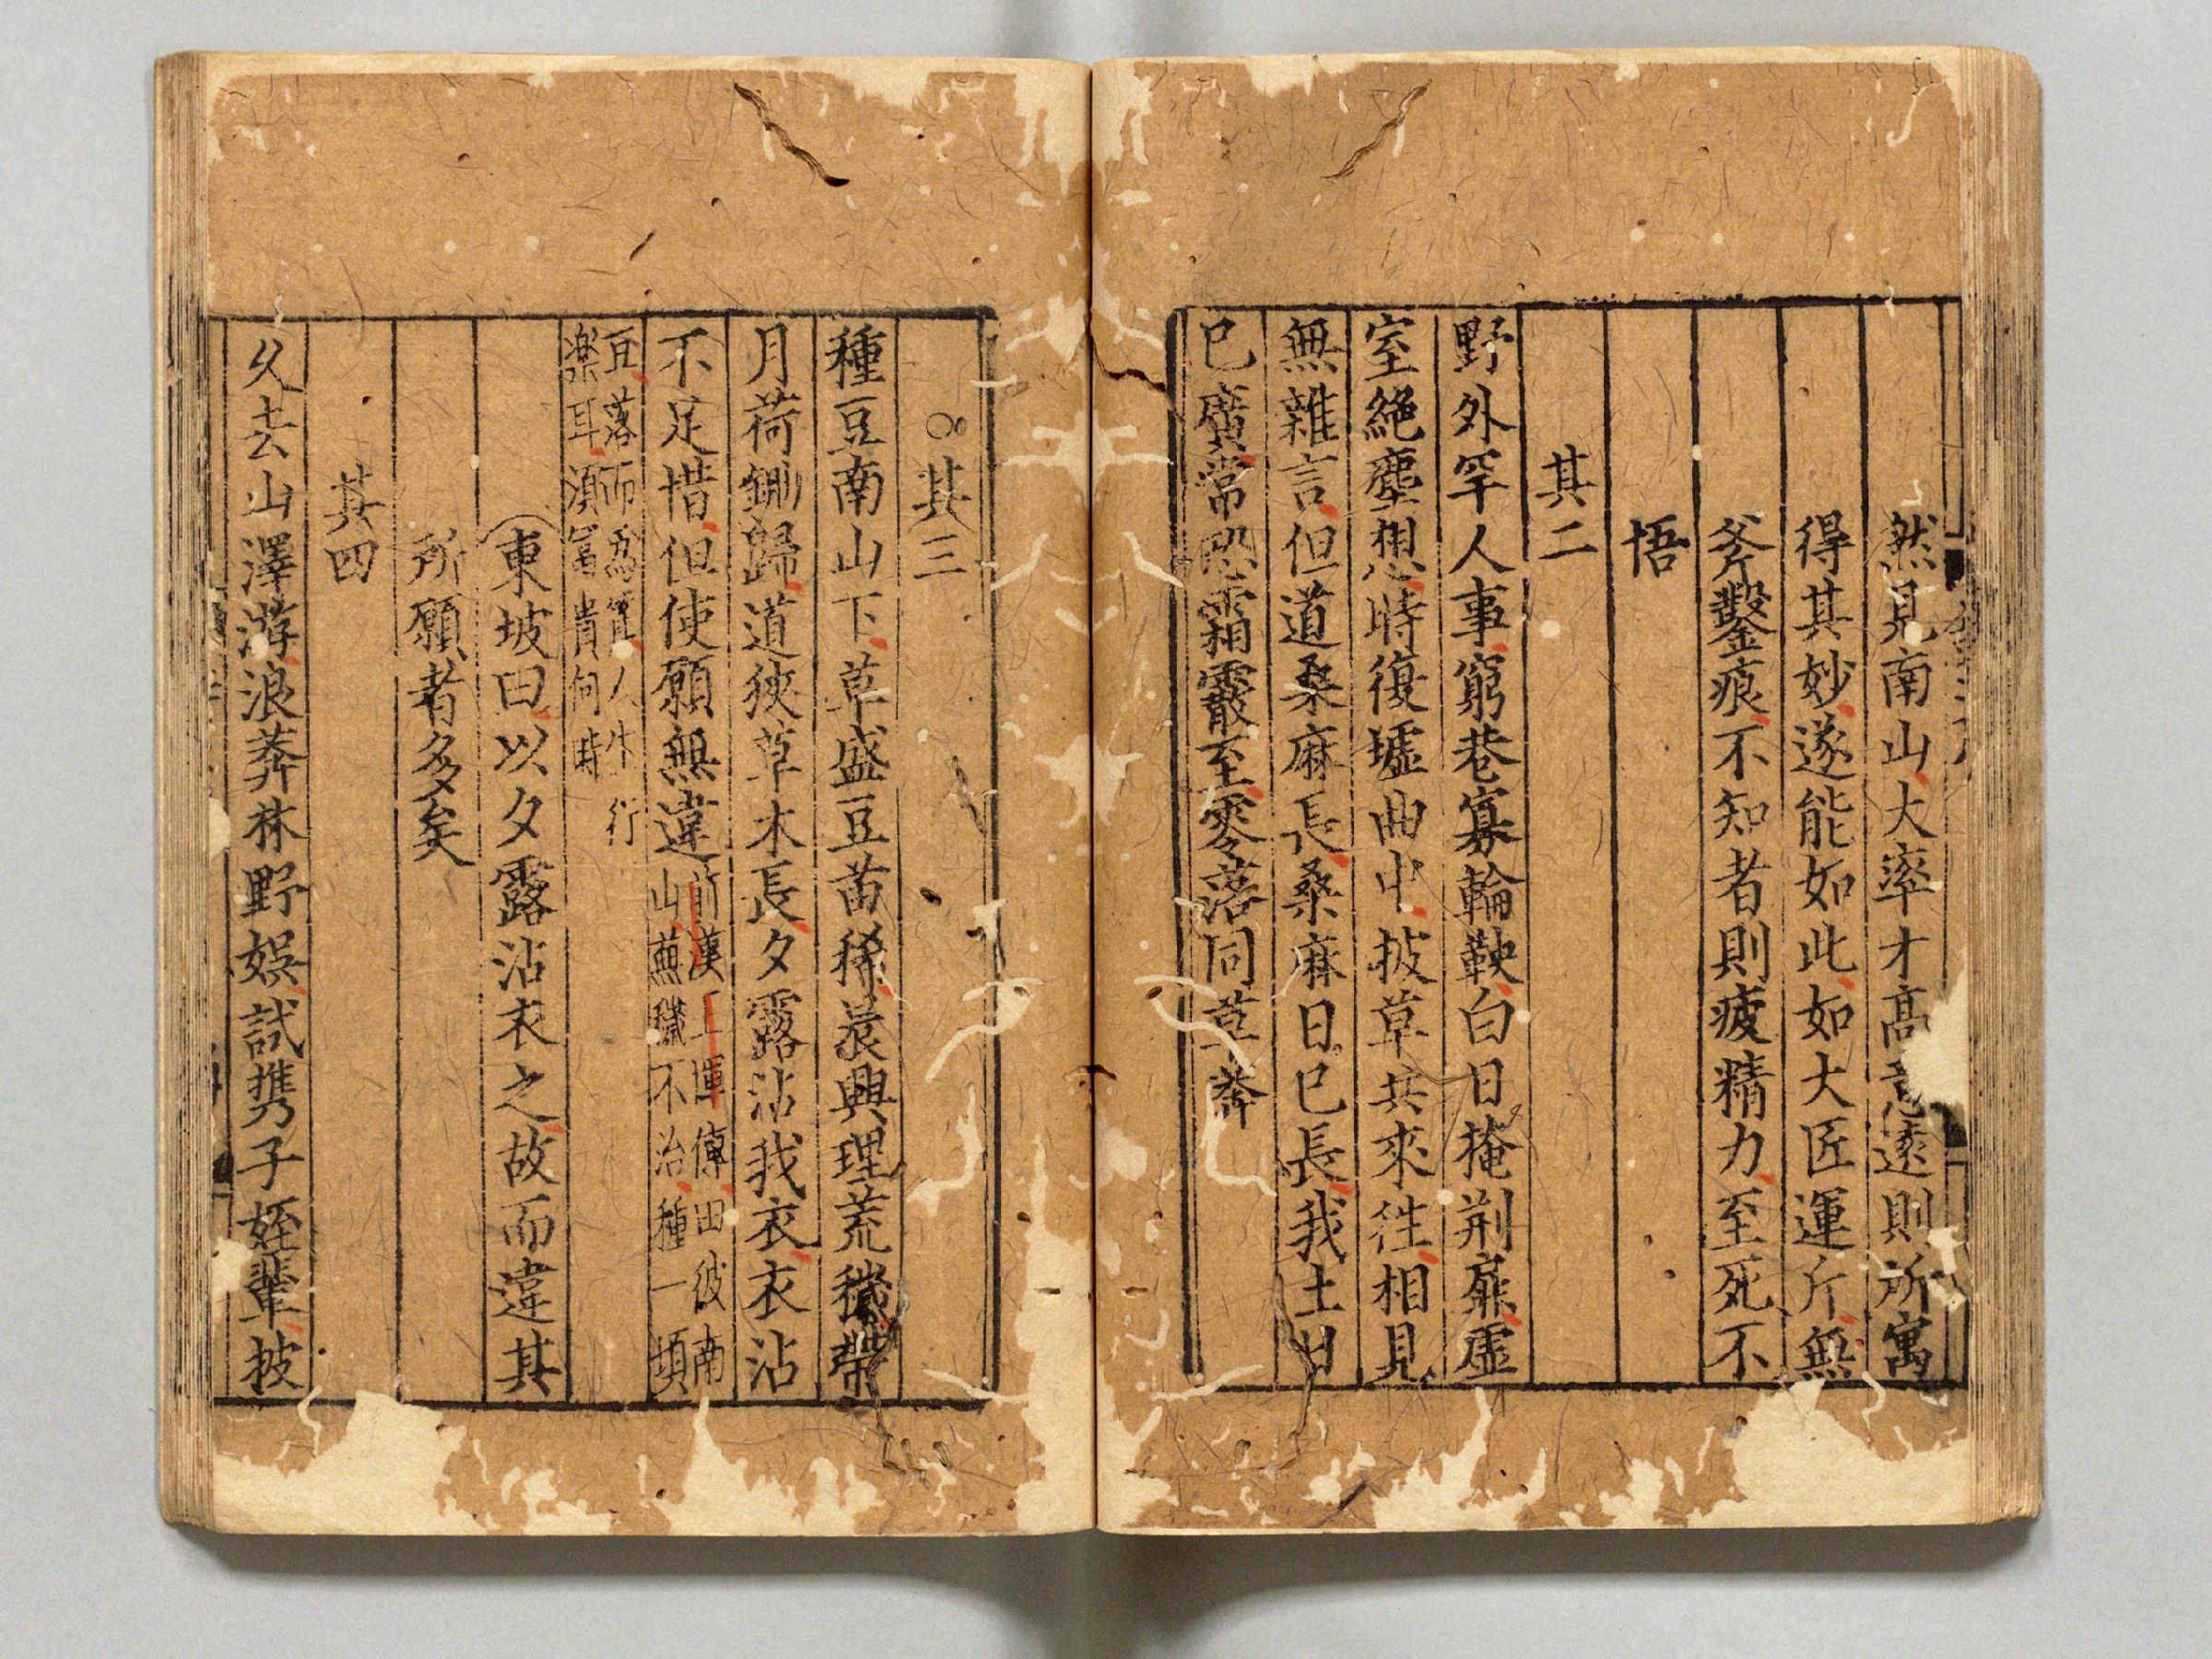 然見南山大率才高意遠則所寓
得其妙遂能如此如大匠運斤無
斧鑿痕不知者則疲精力至死不
悟
其二
野外罕人事窮巷寡輪鞅白日掩荆扉虛
室絕塵想時復墟曲中披草共來徃相見
無雜言但道桑麻長桑麻日已長我土日
已廣常恐霜霰至零落同草莽
其三
種豆南山下草盛豆苗稀晨興理荒穢帶
月荷鋤歸道狹草木長夕露沾我衣衣沾
不足惜但使願無違前漢王惲傳田彼南
山蕪穢不治種一頃
豆落而爲萁人生行
楽耳湏富貴何時
東坡曰以夕露沾衣之故而違其
所願者多矣
其四
久去山澤游浪莽林野娛試携子姪輩披